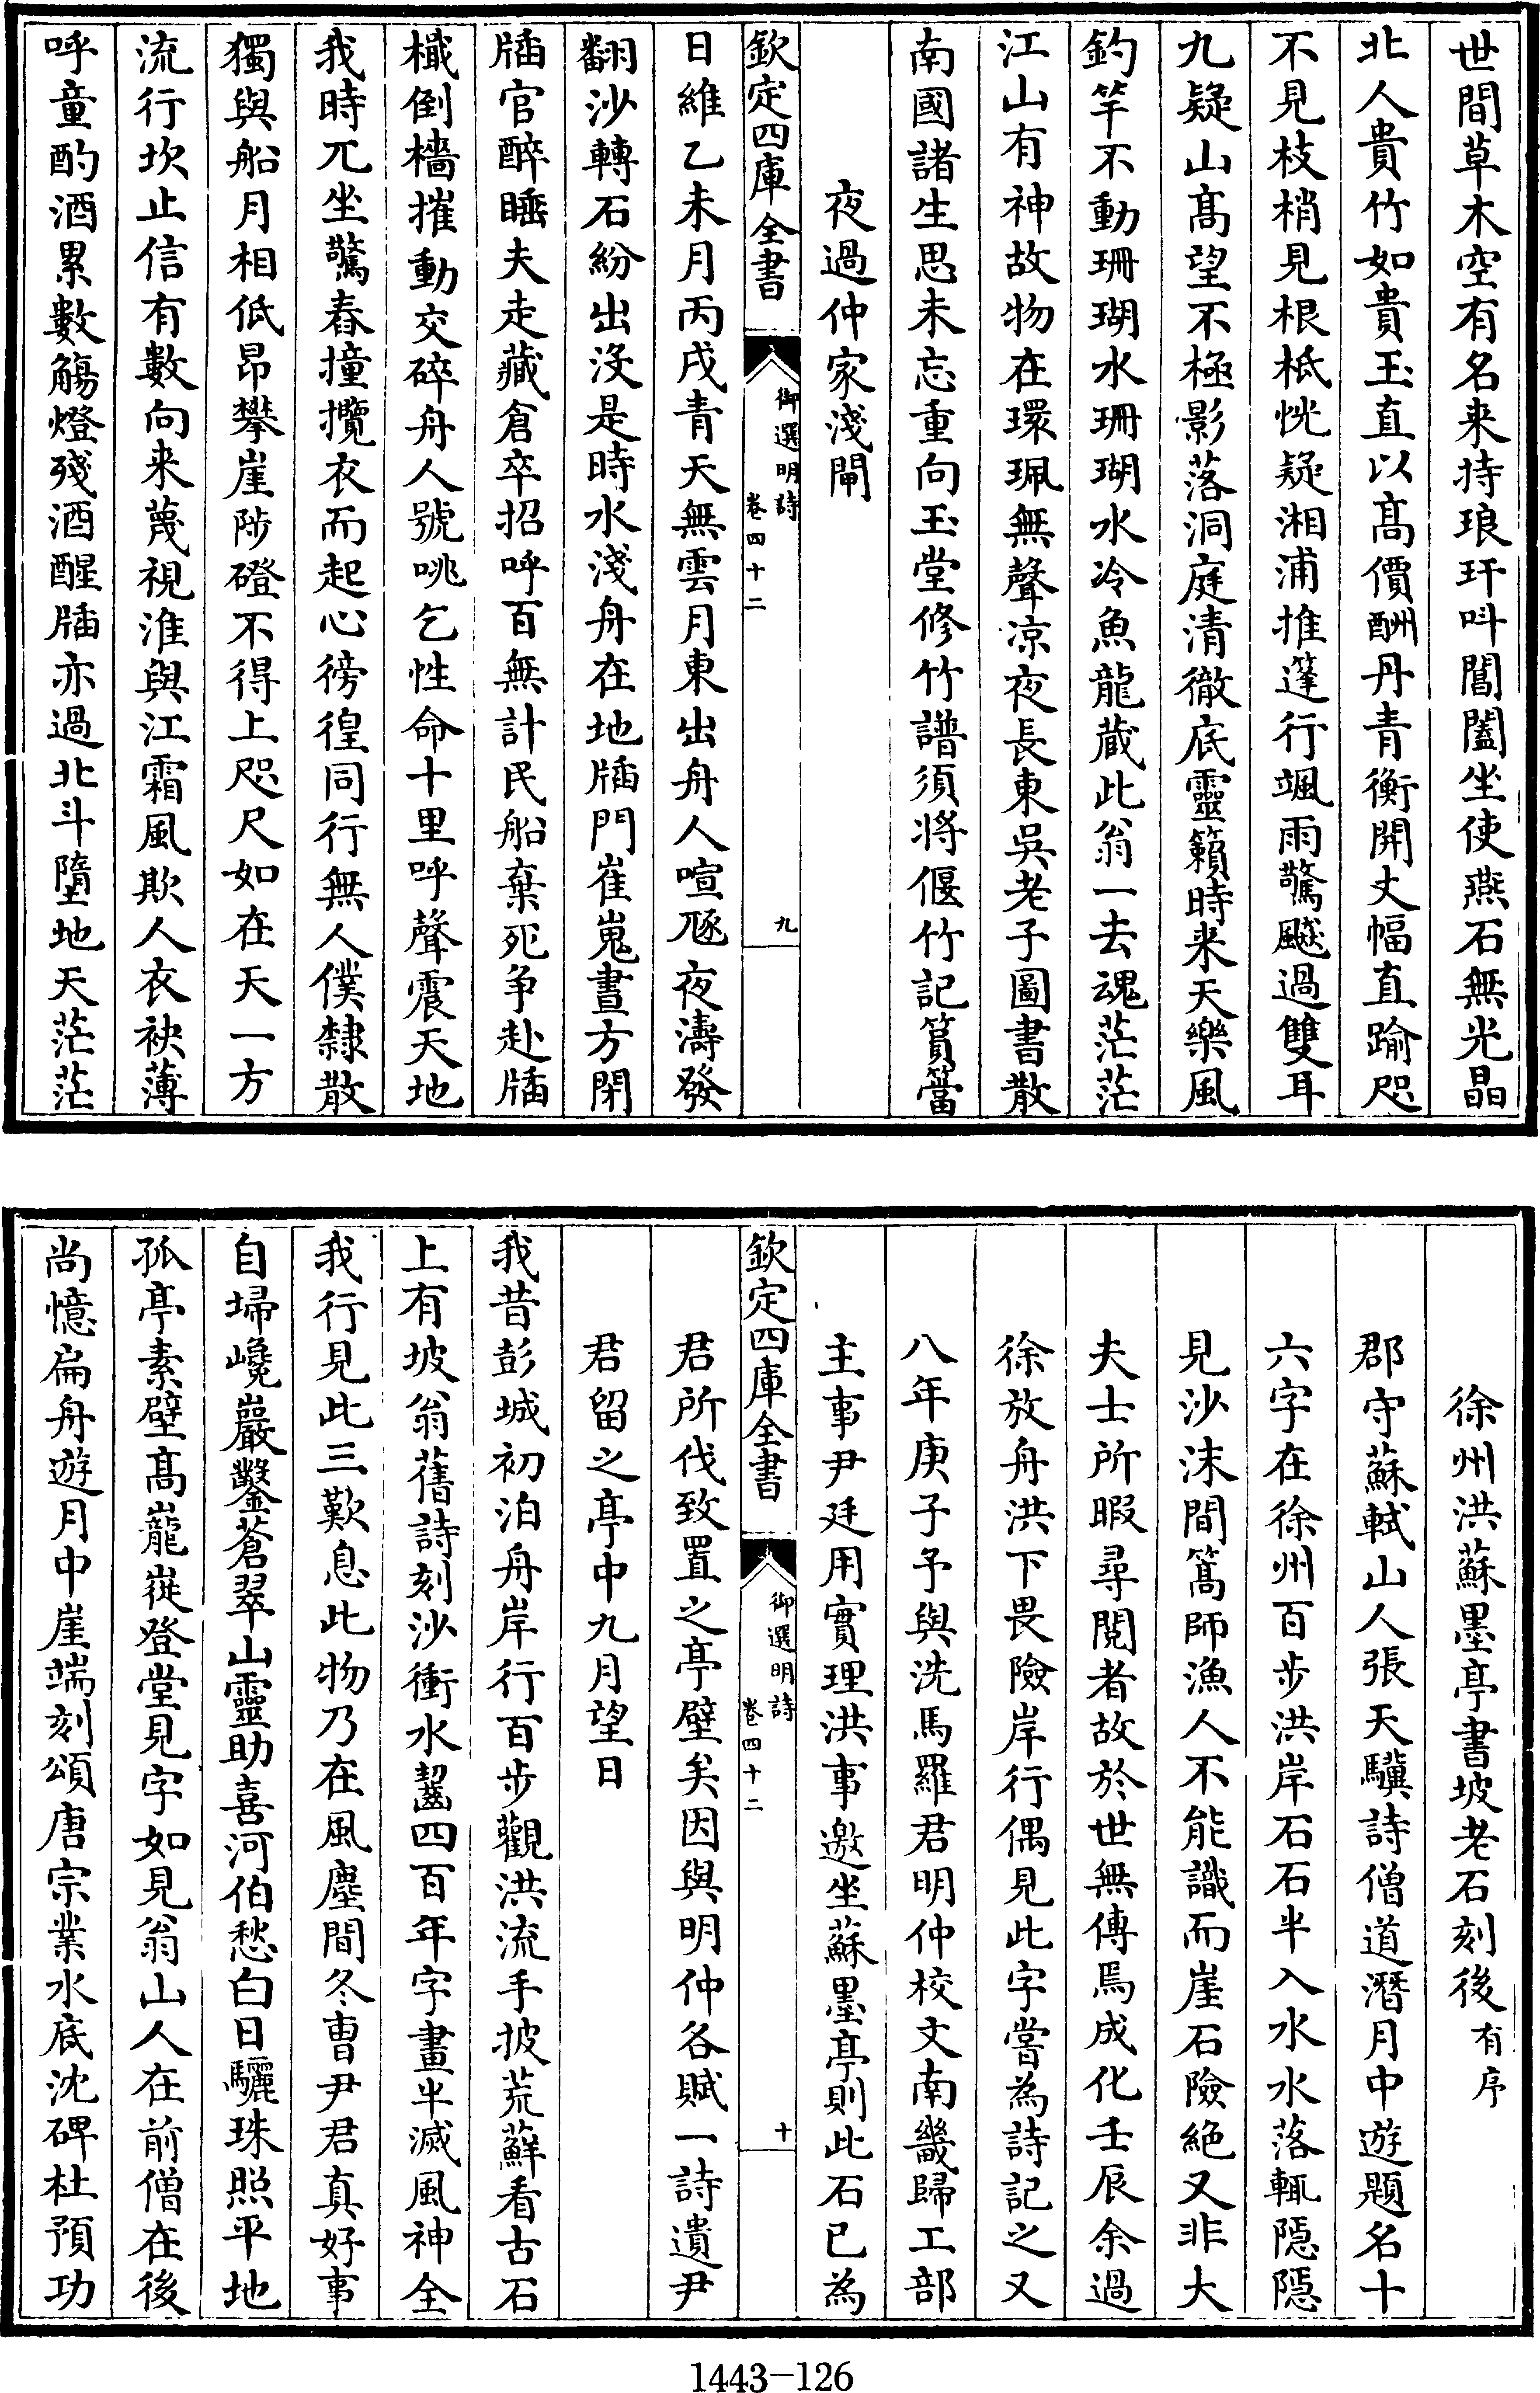 世間草木空有名来持琅玕叫閶闔坐使燕石無光晶
北人貴竹如貴玉直以髙價酬丹青衡開丈幅直踰咫
不見枝梢見根柢恍疑湘浦推篷行颯雨驚飈過雙耳
九疑山髙望不極影落洞庭清徹底靈籟時来天樂風
釣竿不動珊瑚水珊瑚水冷魚龍蔵此翁一去魂茫茫
江山有神故物在環珮無聲凉夜長東吳老子圖書散
南國諸生思未忘重向玉堂修竹譜須将偃竹記篔簹
夜過仲家淺閘
欽定四庫全書
御選明詩
卷四十二
九
日維乙未月丙戌青天無雲月東出舟人喧豗夜濤發
翻沙轉石紛出沒是時水淺舟在地牐門崔嵬晝方閉
牐官醉睡夫走藏倉卒招呼百無計民船棄死争赴牐
檝倒檣摧動交碎舟人號咷乞性命十里呼聲震天地
我時兀坐驚舂撞攬衣而起心徬徨同行無人僕隸散
獨與船月相低昂攀崖陟磴不得上咫尺如在天一方
流行坎止信有數向来蔑視淮與江霜風欺人衣袂薄
呼童酌酒累數觴燈殘酒醒牐亦過北斗墮地天茫茫
徐州洪蘇墨亭書坡老石刻後有序
郡守蘇軾山人張天驥詩僧道潛月中遊題名十
六字在徐州百步洪岸石石半入水水落輒隠隠
見沙沫間篙師漁人不能識而崖石險絶又非大
夫士所暇尋閱者故於世無傳焉成化壬辰余過
徐放舟洪下畏險岸行偶見此字嘗為詩記之又
八年庚子予與洗馬羅君明仲校文南畿歸工部
主事尹廷用實理洪事邀坐蘇墨亭則此石已為
欽定四庫全書
御選明詩
卷四十二
十
君所伐致置之亭壁矣因與明仲各賦一詩遺尹
君留之亭中九月望日
我昔彭城初泊舟岸行百步觀洪流手披荒蘚看古石
上有坡翁舊詩刻沙衝水齧四百年字畫半滅風神全
我行見此三歎息此物乃在風塵間冬曺尹君真好事
自埽巉巖鑿蒼翠山靈助喜河伯愁白日驪珠照平地
孤亭素壁髙巃嵸登堂見字如見翁山人在前僧在後
尚憶扁舟遊月中崖端刻頌唐宗業水底沈碑杜預功
1443-126